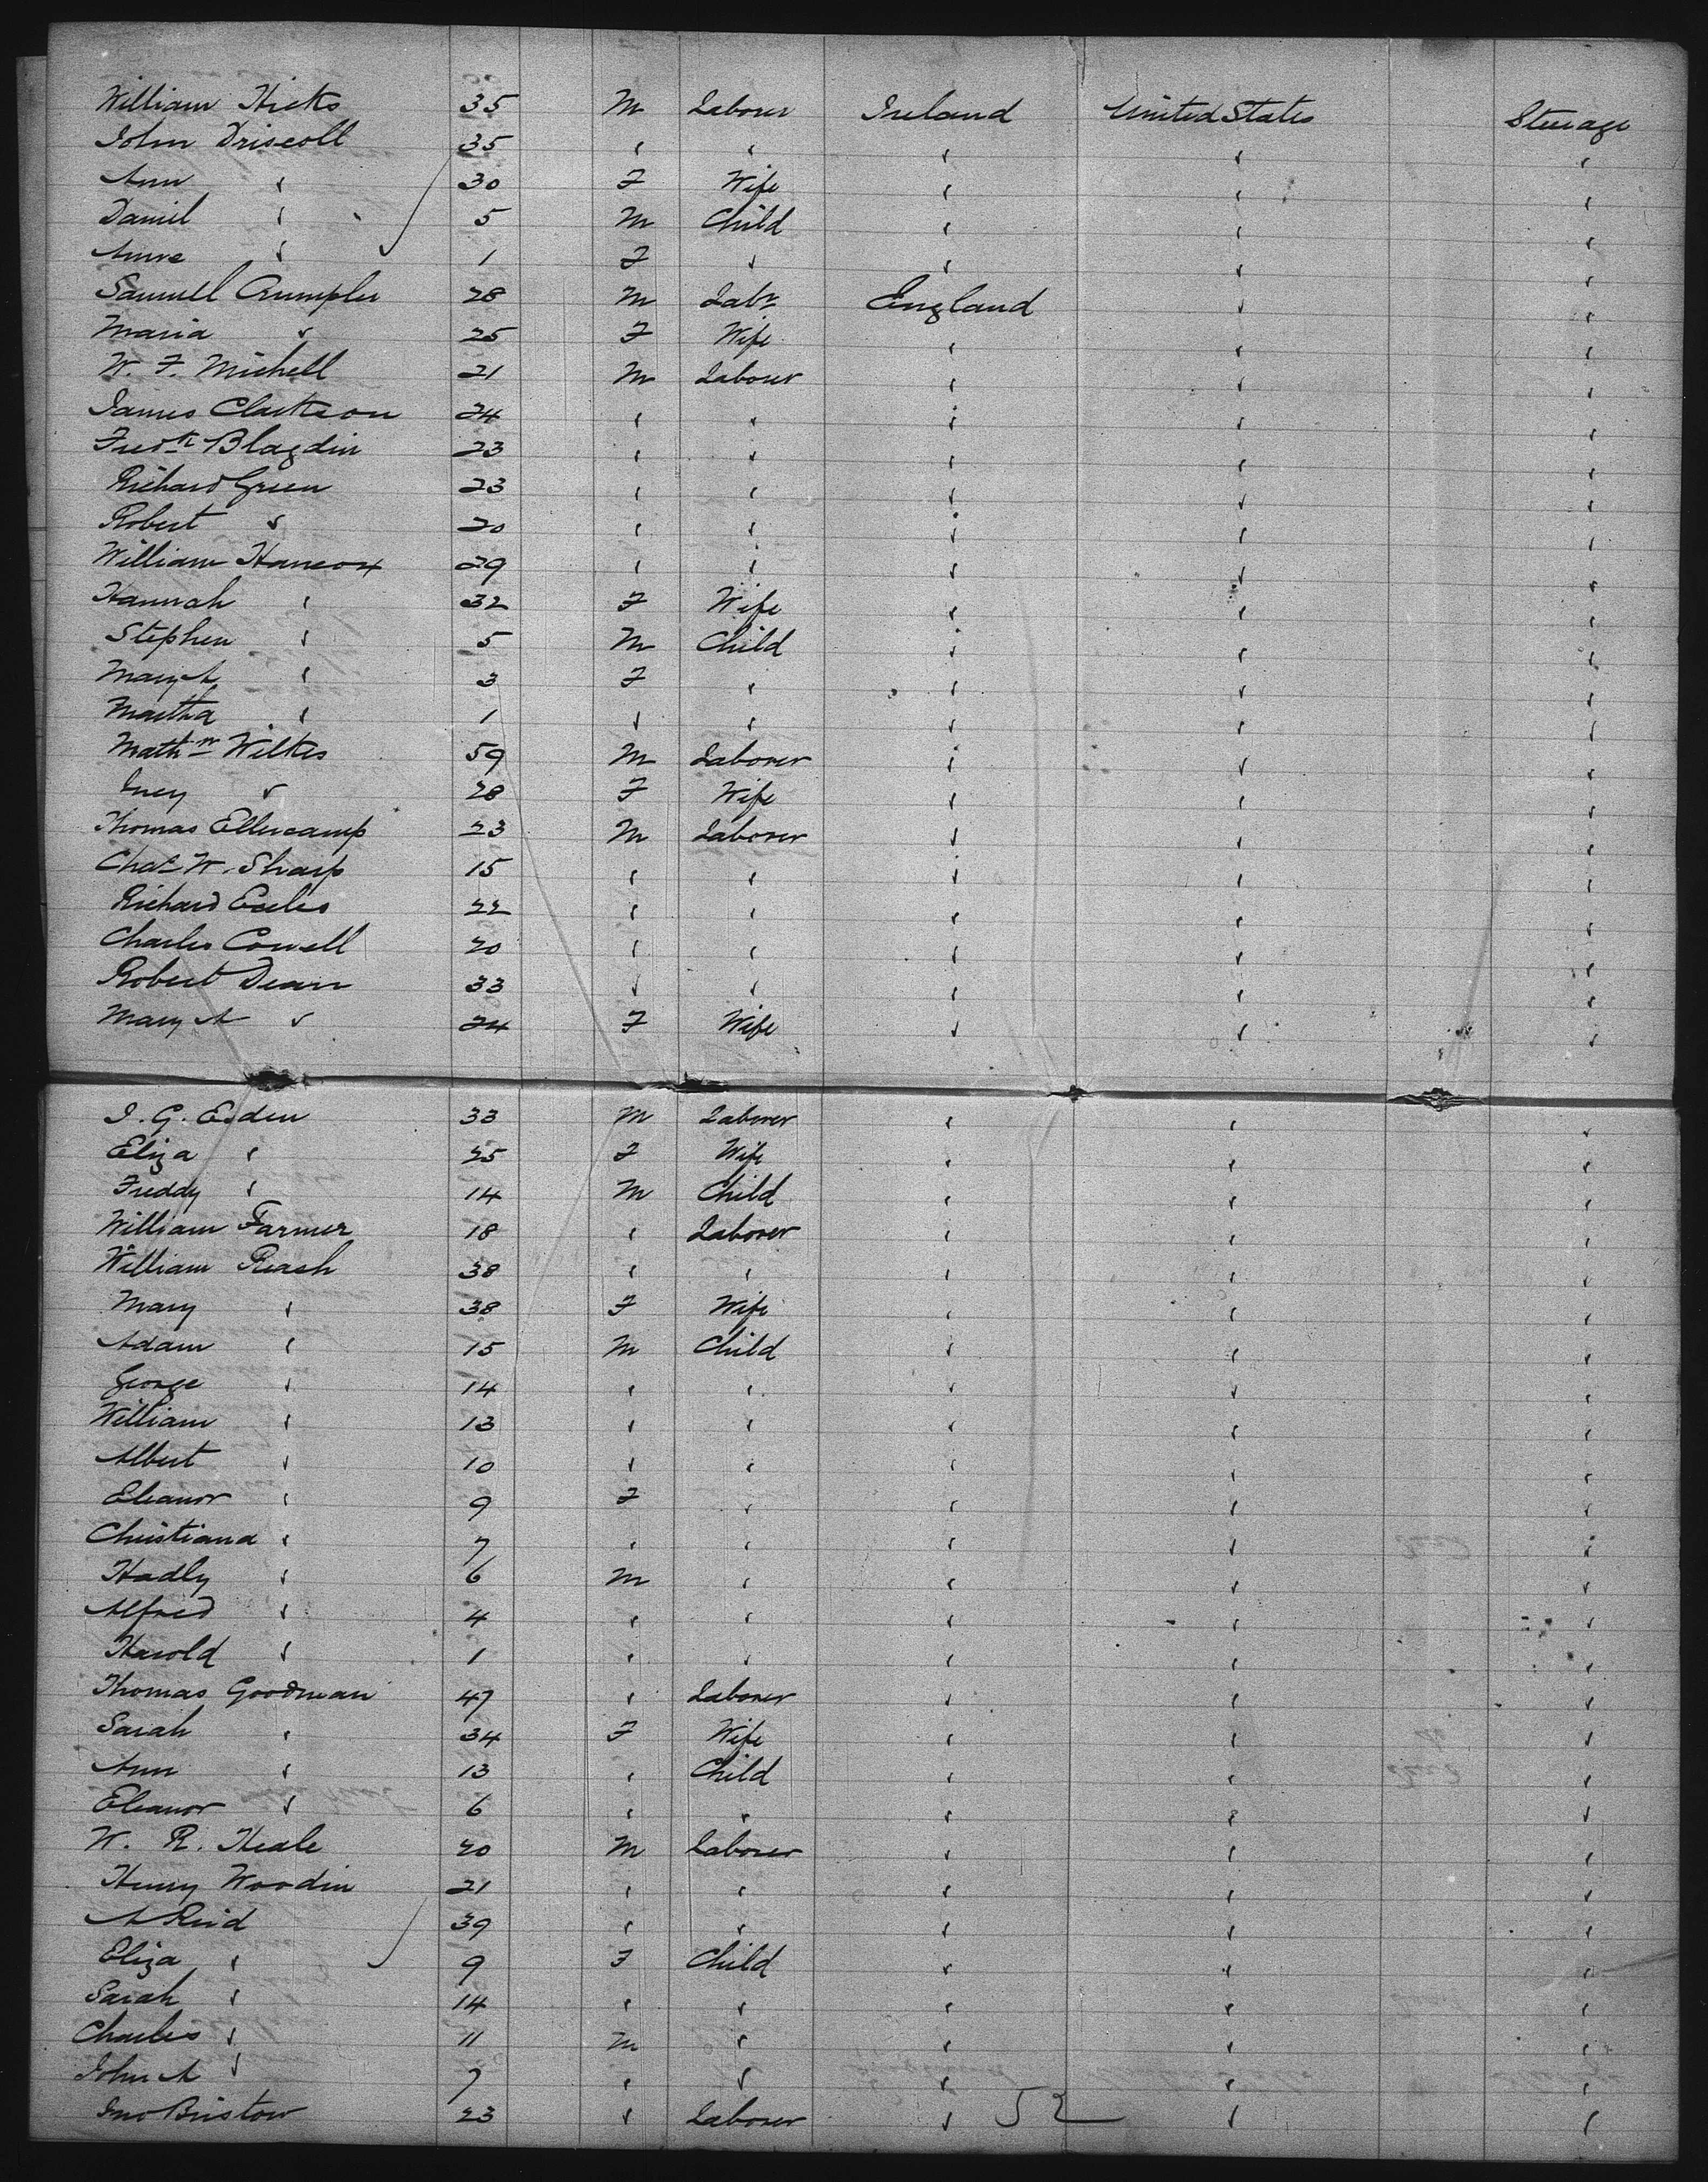 William Hicks 35 M Laborer Ireland United States Steerage
John Driscoll 35 " " " " "
Ann " 30 F Wife " " "
Daniel " 5 M Child " " "
Anne " 1 F " " " "
Samuell Crumpler 28 M Labr England " "
Maria " 25 F Wife " " "
W. F. Michell 21 M Laborer " " "
James Clarkson 24 " " " " "
Fredk Blagdin 23 " " " " "
Richard Green 23 " " " " "
Robert " 20 " " " " "
William Hancox 29 " " " " "
Hannah " 32 F Wife " " "
Stephen " 5 M Child " " "
Mary A " 3 F " " " "
Martha " 1 " " " " "
Mathw Wilkes 59 M Laborer " " "
Lucy " 28 F Wife " " "
Thomas Ellercamp 23 M Laborer " " "
Chas W. Sharp 15 " " " " "
Richard Eccles 22 " " " " "
Charles Cowell 20 " " " " "
Robert Dean 33 " " " " "
Mary A " 24 F Wife " " "
J. G. Esden 33 M Laborer " " "
Eliza " 25 F Wife " " "
Freddy " 14 M Child " " "
William Farmer 18 " Laborer " " "
William Reash 38 " " " " "
Mary " 38 F Wife " " "
Adam " 15 M Child " " "
George " 14 " " " " "
William " 13 " " " " "
Albert " 10 " " " " "
Eleanor " 9 F " " " "
Christiana " 7 " " " " "
Hadly " 6 M " " " "
Alfred " 4 " " " " "
Harold " 1 " " " " "
Thomas Goodman 47 " Laborer " " "
Sarah " 34 F Wife " " "
Ann " 13 " Child " " "
Eleanor " 6 " " " " "
W. R. Heale 20 M Laborer " " "
Henry Woodin 21 " " " " "
A Reid 39 " " " " "
Eliza " 9 F Child " " "
Sarah " 14 " " " " "
Charles " 11 M " " " "
John A " 7 " " " " "
Jno Bristow 23 " Laborer " " "
52